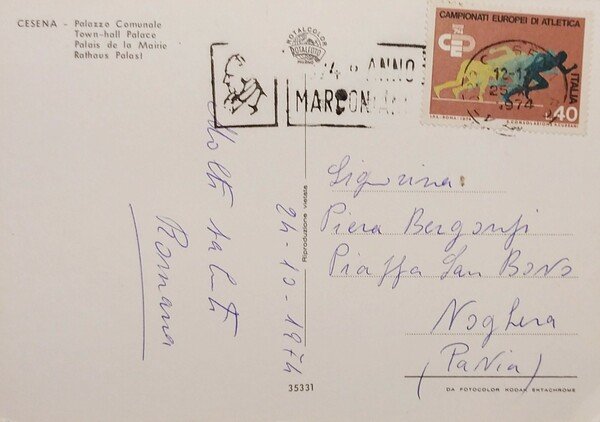 CESENA - Palazzo Comunale
Town-hall Palace
Palais de la Mairie
Rathaus Palast
ROTALCOLOR
ROTALFOTO
MILANO
1974 ANNO
MARCONIANO
CAMPIONATI EUROPEI DI ATLETICA
ITALIA
L.40
12-1
25
1974
Molti saluti
Romana
24-10-1974
Riproduzione vietata
35331
Signorina
Piera Bergonfi
Piaffa San Bovo
Noghera
(Pavia)
DA FOTOCOLOR KODAK EKTACHROME